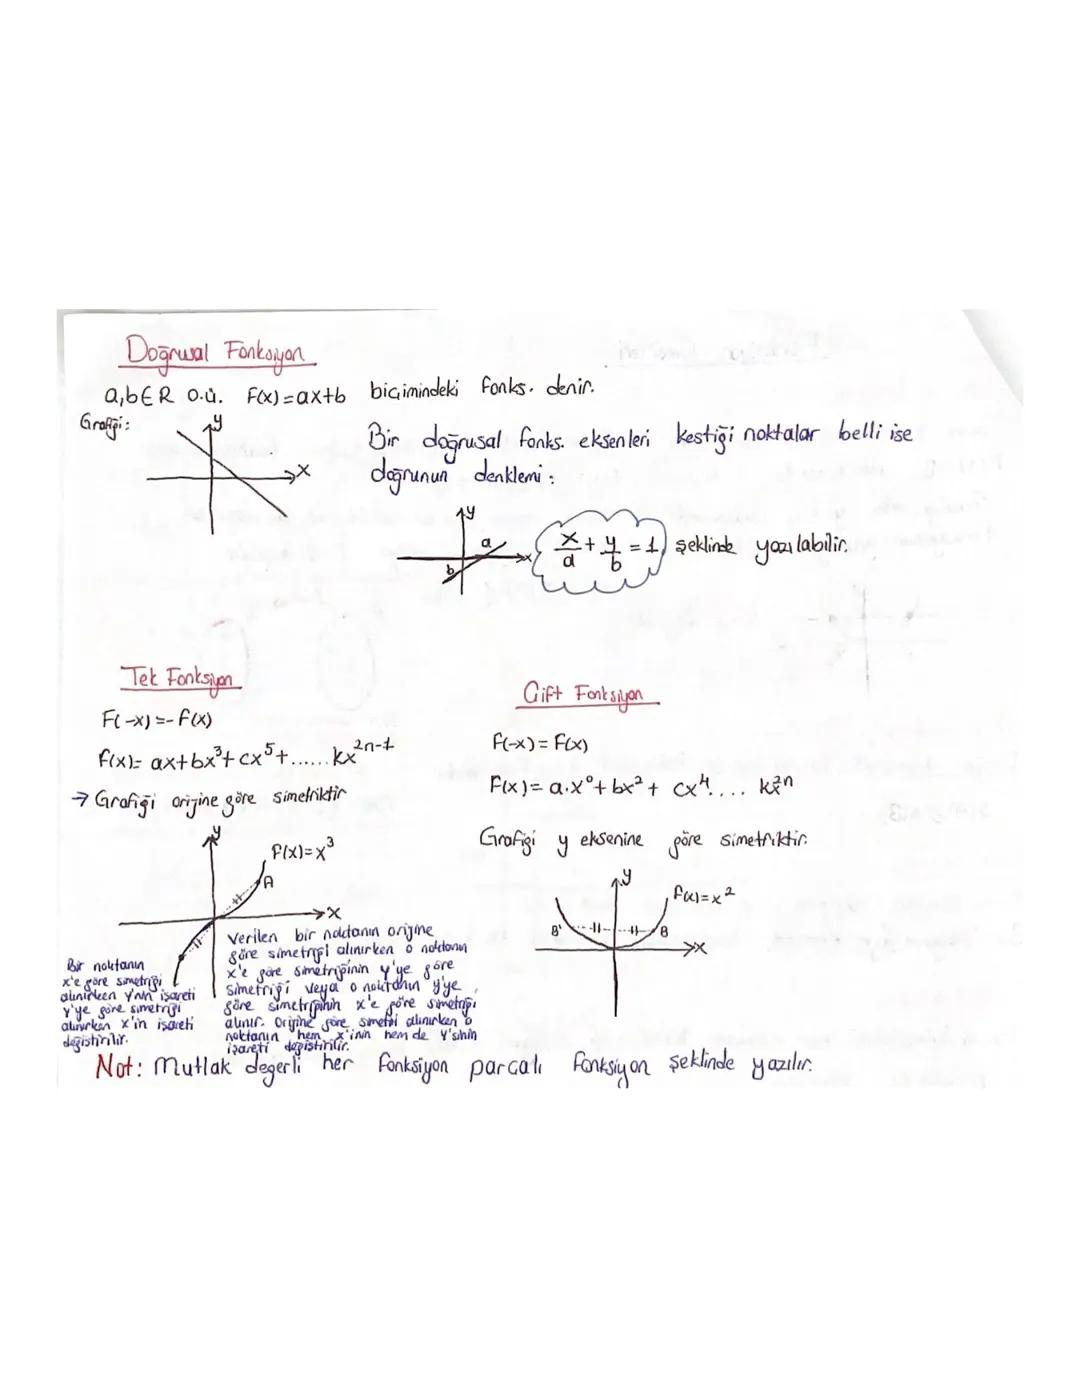 Doğrusal Fonksiyon
a,b∈R o.ü. F(x)=ax+b biçimindeki fonks. denir.
Grafiği:
y
x
Bir doğrusal fonks. eksenleri kestiği noktalar belli ise
doğrunun denklemi:
y
a
b
x
x/a + y/b = 1 şeklinde yazılabilir.
Tek Fonksiyon
F(-x)=-f(x)
f(x)= ax+bx³+cx⁵+......kx²ⁿ⁻¹
→ Grafiği orijine göre simetriktir
y
f(x)=x³
A
x
Bir noktanın
x'e göre simetriği
alınırken y'nin işareti
y'ye göre simetriği
alınırken x'in işareti
değiştirilir.
Verilen bir noktanın orijine
göre simetriği alınırken o noktanın
x'e göre simetriğinin y'ye göre
simetriği veya o noktanın y'ye
göre simetriğinin x'e göre simetriği
alınır. Orijine göre simetri alınırken o
noktanın hem x'inin hem de y'sinin
işareti değiştirilir.
Çift Fonksiyon
f(-x)=F(x)
F(x)= a.x⁰+bx²+cx⁴.... kx²ⁿ
Grafiği y eksenine göre simetriktir.
y
f(x)=x²
B'
B
x
Not: Mutlak değerli her fonksiyon parçalı fonksiyon şeklinde yazılır.